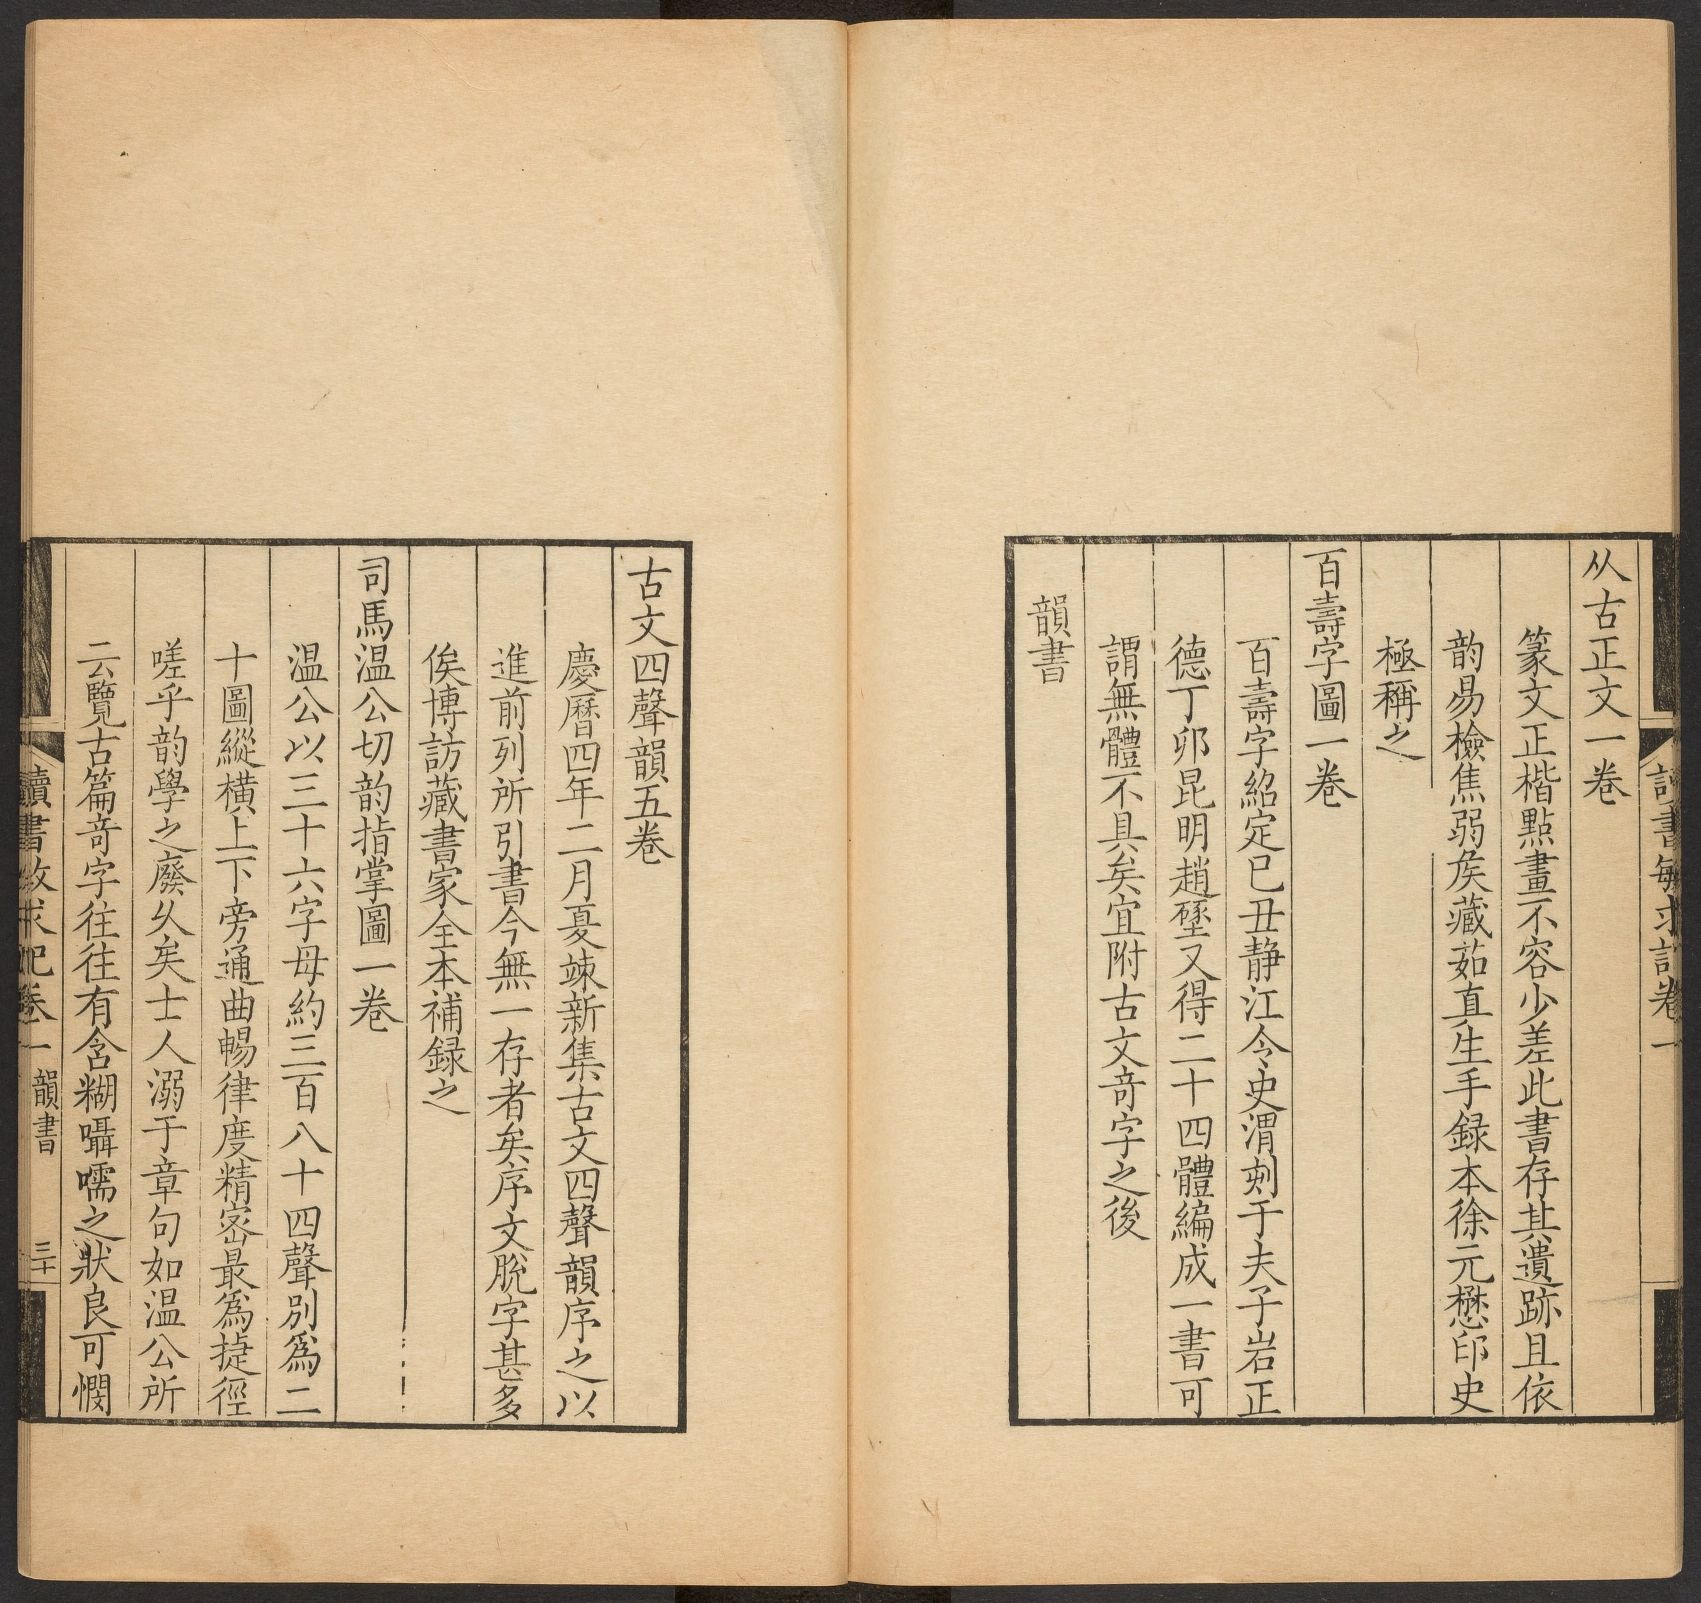 从古正文一卷
篆文正楷點畫不容少差此書存其遺跡且依
韵易檢焦弱矦藏茹真生手録本徐元懋印史
極稱之
百壽字圖一卷
百壽字紹定已丑静江令史渭刻于夫子岩正
德丁卯昆明趙壁又得二十四體編成一書可
謂無體不具矣宜附古文竒字之後
韻書
古文四聲韻五卷
慶曆四年二月夏竦新集古文四聲韻序之以
進前列所引書今無一存者矣序文脫字甚多
俟博訪藏書家全本補録之
司馬温公切韵指掌圖一卷
温公以三十六字母約三百八十四聲別爲二
十圖縱横上下旁通曲暢律度精宻最爲捷徑
嗟乎韵學之廢久矣士人溺于章句如温公所
云覽古篇竒字往往有含糊囁嚅之狀良可憫
讀書敏求記卷一 韻書 三十